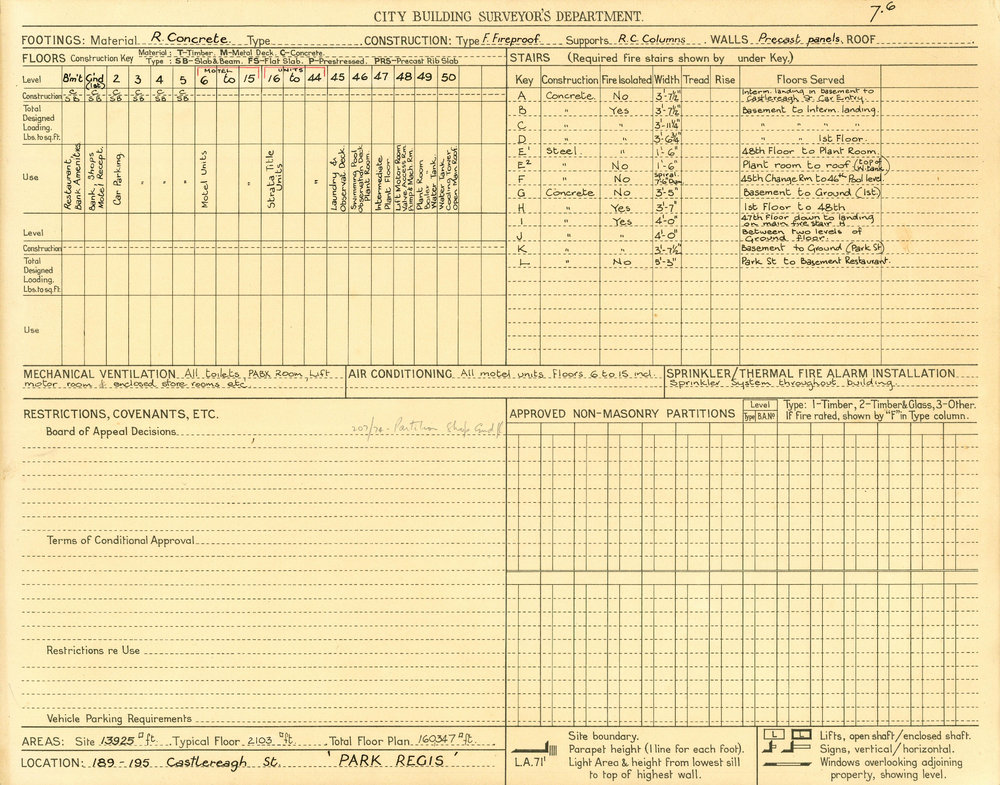 CITY BUILDING SURVEYOR'S DEPARTMENT.
7.6
FOOTINGS: Material R. Concrete. Type CONSTRUCTION: Type F. Fireproof Supports R.C. Columns WALLS Precast panels, ROOF
FLOORS Construction Key Material: T-Timber, M-Metal Deck, C-Concrete.
Type: SB-Slab&Beam. FS-Flat Slab. P-Prestressed. PRS-Precast Rib Slab
MOTEL UNITS
Level B'm't Gnd (1st) 2 3 4 5 6 to 15 16 to 44 45 46 47 48 49 50
Construction C SB C SB C SB C SB C SB C SB
Total Designed Loading. Lbs. to sq. ft.
Use
Restaurant, Bank Amenities
Bank, Shops Motel Recept.
Car Parking
"
"
"
Motel Units
Strata Title Units
"
Laundry & Observat Deck.
Swimming Pool Observation Deck Plant Room.
Intermediate Plant Floor.
Lift Motor Room Valve Access Rm Pump & Mech. Rm
Plant Room Boiler Water Tank.
Water Tank Cooling Tower, Open Main Roof
Level
Construction
Total Designed Loading. Lbs. to sq. ft.
Use
STAIRS (Required Fire stairs shown by under Key.)
Key Construction Fire Isolated Width Tread Rise Floors Served
A Concrete. No 3'-7½" Interm. landing in basement to Castlereagh St Car Entry.
B " Yes 3'-7½" Basement to Interm. landing.
C " " 3'-11¼" " " " "
D " " 3'-6¾" " " 1st Floor.
E¹ Steel. " 1'-6" 48th Floor to Plant Room.
E² " No 1'-6" Plant room to roof (top of W. tank.)
F " No Spiral 7'-6" Diam. 45th Change Rm to 46th Pool level.
G Concrete No 3'-5" Basement to Ground (1st).
H " Yes 3'-7" 1st Floor to 48th
I " Yes 4'-0" 47th Floor down to landing on main fire stair H
J " " 4'-0" Between two levels of Ground floor.
K " " 3'-7½" Basement to Ground (Park St)
L " No 5'-3" Park St to Basement Restaurant.
MECHANICAL VENTILATION All toilets, PABX Room, Lift
motor room & enclosed store rooms etc
AIR CONDITIONING All motel units Floors 6 to 15 incl.
SPRINKLER/THERMAL FIRE ALARM INSTALLATION
Sprinkler System throughout building
RESTRICTIONS, COVENANTS, ETC.
Board of Appeal Decisions 207/74 - Partition Shop Gnd fl
Terms of Conditional Approval
Restrictions re Use
Vehicle Parking Requirements
APPROVED NON-MASONRY PARTITIONS
Level
Type B.A.Nº
Type: 1-Timber, 2-Timber&Glass, 3-Other.
If Fire rated, shown by "F" in Type column.
AREAS: Site 13925 □ft. Typical Floor 2103 □ft Total Floor Plan 160347 □ft.
LOCATION: 189 - 195 Castlereagh St. 'PARK REGIS'
Site boundary.
Parapet height (1 line for each foot).
L.A. 71' Light Area & height from lowest sill
to top of highest wall.
L L Lifts, open shaft/enclosed shaft.
Signs, vertical/horizontal.
Windows overlooking adjoining
property, showing level.